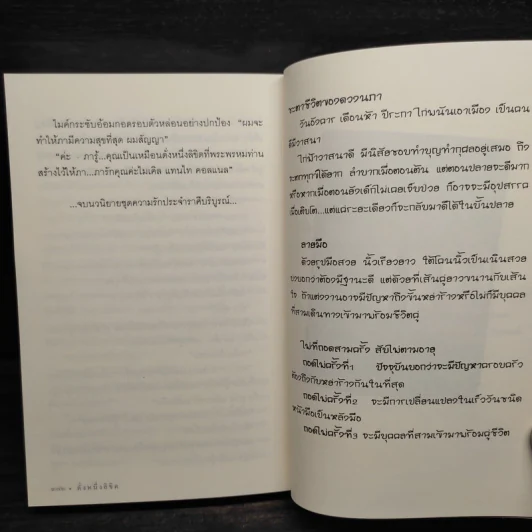 ไมค์กระชับอ้อมกอดรอบตัวหล่อนอย่างปกป้อง "ผมจะ
ทำให้ภามีความสุขที่สุด ผมสัญญา"
"ค่ะ ภารู้...คุณเป็นเหมือนดั่งหนึ่งลิขิตที่พระพรหมท่าน
สร้างไว้ให้ภา...ภารักคุณค่ะไมเคิล แทนไท คอลแนล"
...จบนวนิยายชุดความรักประจำราศีบริบูรณ์...
ดั่งหนึ่งลิขิต
ชะตาชีวิตของดวงนภา
วันอังคาร เดือนห้า ปีระกา ไก่พันเอาเมือง เป็นคน
มีวาสนา
ไก่ฟ้าวาสนาดี มีนิสัยชอบทำบุญทำกุศลอยู่เสมอ ถึง
จะตกทุกข์ได้ยาก ลำบากเมื่อตอนต้น แต่ตอนปลายจะดีมาก
หรือหากเมื่อตอนยังเด็กไม่เคยเจ็บป่วย ก็อาจจะมีอุปสรรค
เมื่อเติบโต...แต่แค่ระยะเดียวก็จะกลับมาดีได้ในบั้นปลาย
ลายมือ
ด้วยรูปมือสวย นิ้วเรียวยาว ใต้โคนนิ้วเป็นเนินสวย
บ่งบอกว่าต้องมีฐานะดี แต่ด้วยที่เส้นคู่ยาวขนานกับเส้น
ใจ ถ้าแต่งงานอาจมีปัญหาถึงขั้นหย่าร้างหรือไม่ก็มีบุคคล
ที่สามเดินทางเข้ามาพร้อมชีวิตคู่
ไพ่ที่ถอดสามครั้ง สับไพ่ตามอายุ
ถอดไพ่ครั้งที่1 ปัจจุบันบอกว่าจะมีปัญหาครอบครัว
ต้องถึงกับหย่าร้างกันในที่สุด
ถอดไพ่ครั้งที่2 จะมีการเปลี่ยนแปลงในเร็ววันชนิด
หน้ามือเป็นหลังมือ
ถอดไพ่ครั้งที่3 จะมีบุคคลที่สามเข้ามาพร้อมคู่ชีวิต